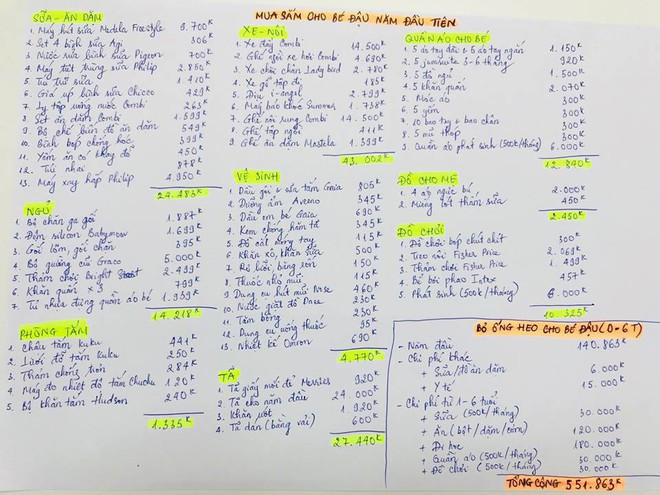 MUA SẮM CHO BÉ ĐẬU NĂM ĐẦU TIÊN
SỮA - ĂN DẶM
1. Máy hút sữa Medela Freestyle 9.700K
2. Set 4 bình sữa Agi 306K
3. Nước rửa bình sữa Pigeon 700K
4. Máy tiệt trùng sữa Philip 2.850K
5. Túi trữ sữa 1.410K
6. Giá úp bình sữa Chicco 429K
7. Ly tập uống nước Combi 263K
8. Set ăn dặm Combi 1.599K
9. Bộ chế biến đồ ăn dặm 549K
10. Bình bóp chống hóc 399K
11. Yếm ăn có khay đỡ 450K
12. Tuỷ nhai 878K
13. Máy xay hấp Philip 4.950K
24.483K
NGỦ
1. Bộ chăn ga gối 1.887K
2. Đệm silicon Babymow 1.699K
3. Gối lõm, gối chặn 395K
4. Bộ giường cũi Graco 5.000K
5. Thảm chơi Bright 2.499K
6. Khăn quấn x 3 799K
7. Tủ nhựa đựng quần áo bé 1.939K
14.218K
PHÒNG TẮM
1. Chậu tắm kuku 441K
2. Lưới đỡ tắm kuku 250K
3. Thảm chống trơn 284K
4. Máy đo nhiệt độ tắm Chuchu 120K
5. Bộ khăn tắm Hudson 240K
1.335K
XE - NÔI
1. Xe đẩy Combi 14.500K
2. Ghế ngồi xe hơi Combi 4.690K
3. Xe chòi chân Ladybird 2.780K
4. Xe gỗ tập đi 185K
5. Địu i-angel 2.799K
6. Máy báo khóc Summer 1.738K
7. Ghế nôi rung Combi 14.500K
8. Ghế tập ngồi 411K
9. Ghế ăn dặm Mastela 1.399K
43.002K
VỆ SINH
1. Dầu gội & sữa tắm Gaia 805K
2. Dưỡng ẩm Aveeno 345K
3. Dầu em bé Gaia 690K
4. Kem chống hăm tã 345K
5. Đồ cắt móng tay 115K
6. Khăn xô, khăn sữa 500K
7. Rơ lưỡi, băng rốn 150K
8. Thuốc nhỏ mũi 115K
9. Dụng cụ hút mũi Nose 460K
10. Nước giặt đồ Dnee 230K
11. Tăm bông 230K
12. Dụng cụ uống thuốc 95K
13. Nhiệt kế Omron 690K
4.770K
TÃ
1. Tã giấy mới đẻ Merries 920K
2. Tã cho năm đầu 24.000K
3. Khăn ướt 1.920K
4. Tã dán (bằng vải) 600K
27.440K
QUẦN ÁO CHO BÉ
1. 5 áo tay dài & 5 áo tay ngắn 1.150K
2. 5 jumsuits 3-6 tháng 920K
3. 5 đồ ngủ 1.500K
4. 5 khăn quấn 2.070K
5. Móc áo 300K
6. 5 yếm 300K
7. 10 bao tay & bao chân 300K
8. 5 mũ thóp 300K
Quần áo phát sinh (500K/tháng) 6.000K
12.840K
ĐỒ CHO MẸ
1. 4 áo ngực bầu 2.000K
2. Miếng lót thấm sữa 450K
2.450K
ĐỒ CHƠI
1. Đồ chơi bóp chút chít 300K
2. Treo nôi Fisher Price 2.069K
3. Thảm chơi Fisher Price 1.499K
4. Bể bơi phao Intex 457K
5. Phát sinh (500K/tháng) 6.000K
10.325K
BỎ ỐNG HEO CHO BÉ ĐẬU (0-6T)
- Năm đầu 140.863K
- Chi phí khác
+ Sữa/đồ ăn dặm 6.000K
+ Y tế 15.000K
- Chi phí từ 1-6 tuổi
+ Sữa (500K/tháng) 30.000K
+ Ăn (bột/dặm/cơm) 120.000K
+ Đi học 180.000K
+ Quần áo (500K/tháng) 30.000K
+ Đồ chơi (500K/tháng) 30.000K
TỔNG CỘNG 551.863K